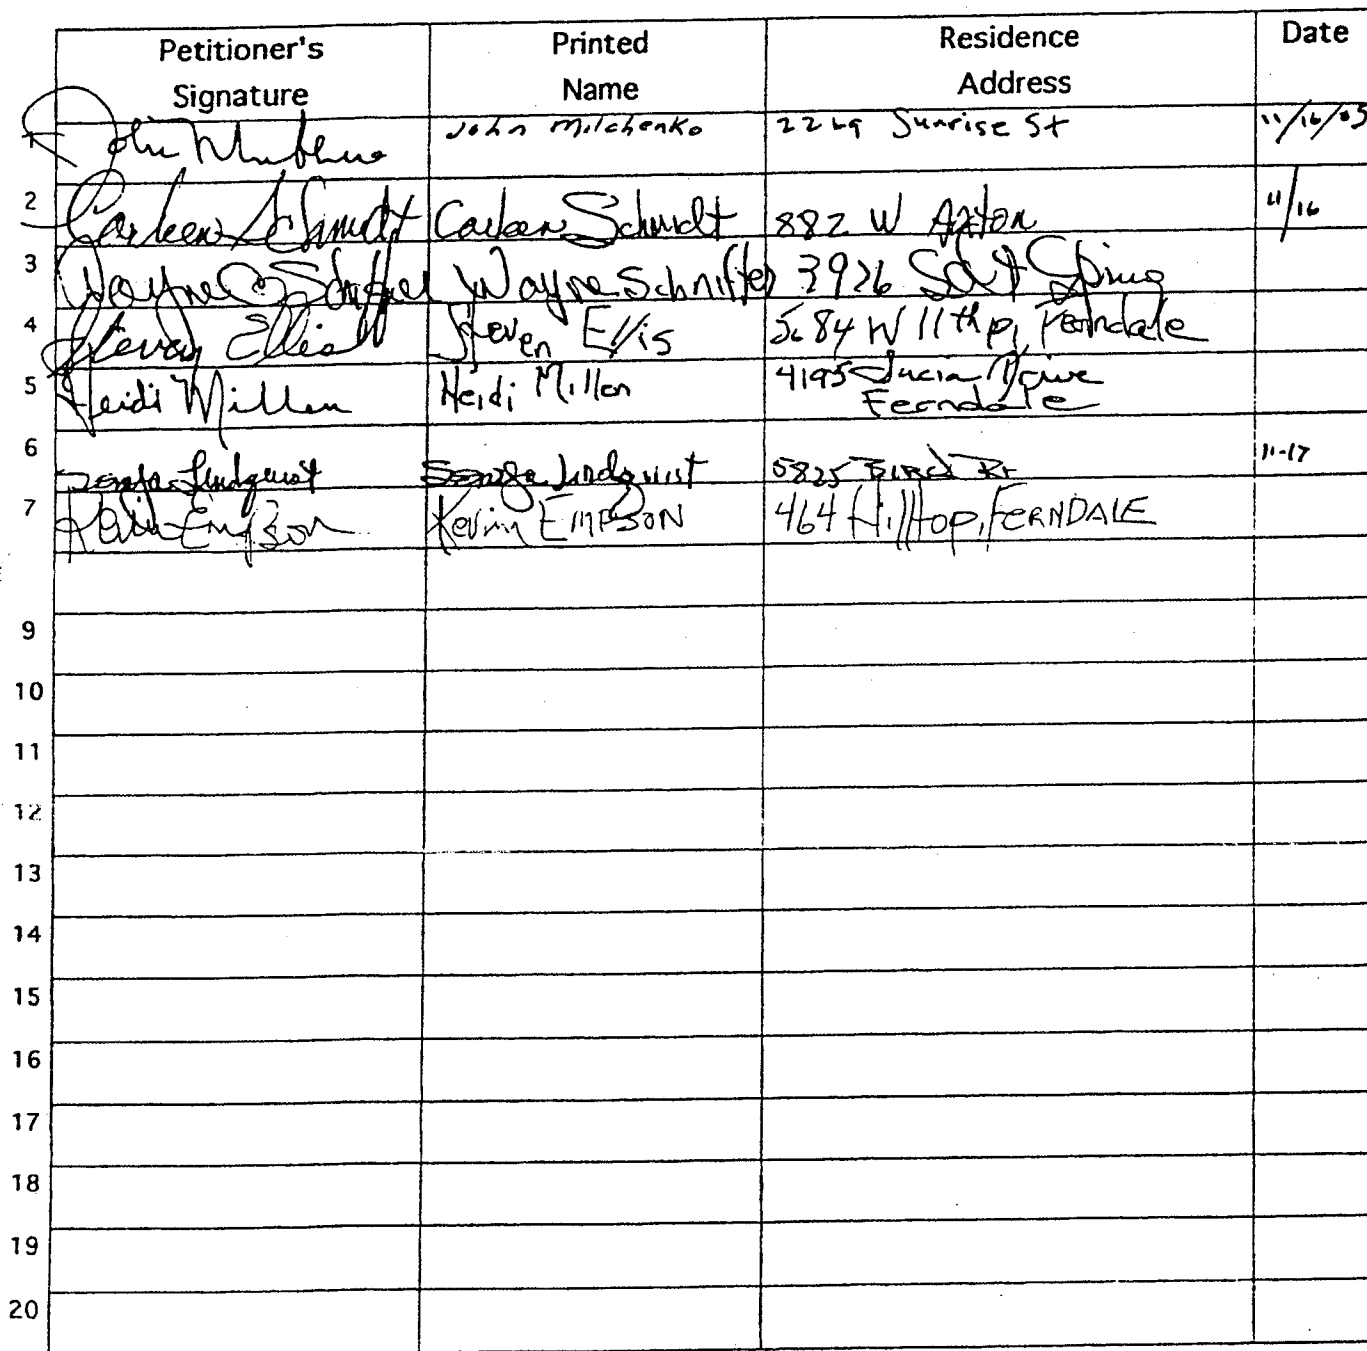 Petitioner's Signature Printed Name Residence Address Date
John Milchenko 2269 Sunrise St 11/16/05
2 Carleen Schmidt Carleen Schmidt 882 W Axton 11/16
3 Wayne Schniffer 3926 Salt Spring
4 Steven Ellis Steven Ellis 5684 W 11th pl Ferndale
5 Heidi Millen Heidi Millen 4195 Lucia Drive
Ferndale
6 Lindquist Lindquist 5825 11-17
7 Kevin Empson Kevin EMPSON 464 Hilltop, FERNDALE
9
10
11
12
13
14
15
16
17
18
19
20